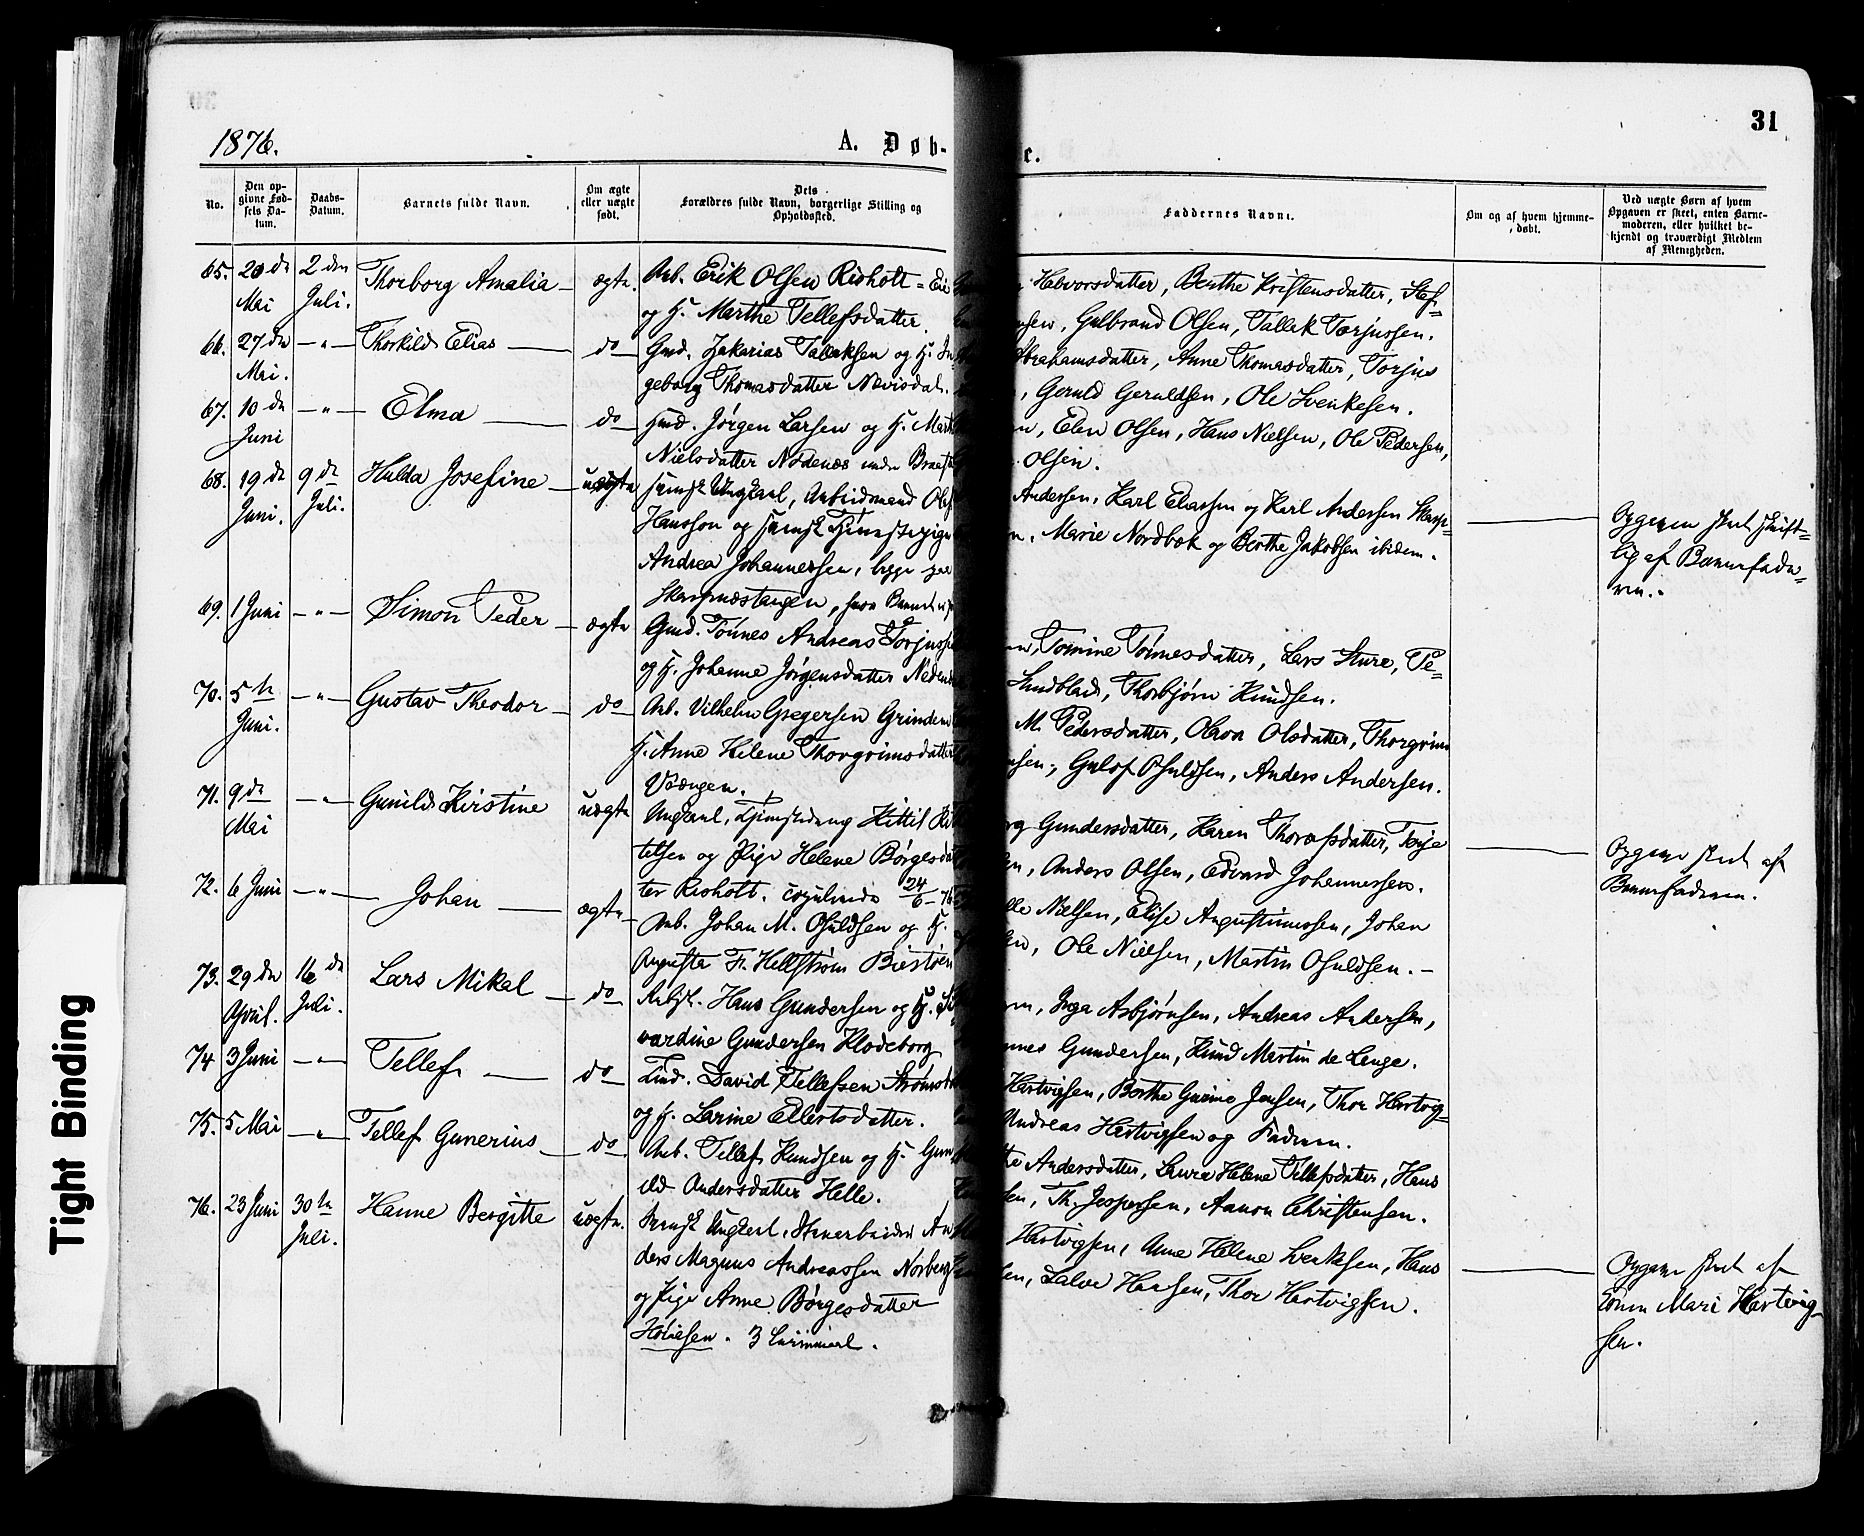 31
1876.
A. Døb-
e.
No.
Den op-
givne Fød-
sels Da-
tum.
Daabs-
Datum.
Barnets fulde Navn.
Om ægte
eller uægte
født.
Dets
Forældres fulde Navn, borgerlige Stilling og
Opholdssted.
Faddernes Navne.
Om og af hvem hjemme-
døbt.
Ved uægte Børn af hvem
Opgaven er skeet, enten Barne-
moderen, eller hvilket be-
kjendt og troværdigt Medlem
af Menigheden.
65. 20 de
Mai
2 den
Juli.
Thorborg Amalia — ægte.
Arb. Erik Olsen Risholt =
og H. Marthe Tellefsdatter.
Halvorsdatter, Berthe Kristensdatter, Stef-
nsen, Gulbrand Olsen, Tallek Torjussen.
66. 27 de
Mai.
—"— Thorkild Elias — do
Gmd. Zakarias Tallaksen og H. In
geborg Thomasdatter Nævisdal.
Abrahamsdatter, Anne Thomasdatter, Torjus
, Gerald Geraldsen, Ole Svenkesen.
67. 10 de
Juni
—"— Elma — do
Hmd. Jørgen Larsen og H. Mart
Nielsdatter Nødenæs under
n, Elen Olsen, Hans Nielsen, Ole Pedersen,
Olsen.
68. 19 de
Juni.
9 de
Juli.
Hulda Josefine — uægte
svensk Ungkarl, Arbeidsmand Olof
Hansson og svensk Tjenestepige
Andrea Johannessen, begge paa
Skarpnæstangen, hvor Barnet
Andersen, Karl Eliassen og Karl Andersen Skarp-
n, Marie Nordbok og Berthe Jakobsen ibidem.
Opgaven skeet skrift-
lig af Barnefade-
ren.
69. 1 Juni —"— Simon Peder — ægte
Gmd. Tönnes Andreas Torjusse
og H. Johanne Jørgensdatter Neden
en, Tomine Tönnesdatter, Lars Sture, Pe-
Sundblad, Thorbjørn Knudsen.
70. 5 te
Juni.
—"— Gustav Theodor — do
Arb. Vilhelm Gregersen Grinden
H. Anne Helene Thorgrimsdatter
Vængen.
M. Pedersdatter, Olava Olsdatter, Thorgrim
nsen, Gulof Osuldsen, Anders Andersen.
71. 9 de
Mai
—"— Gunild Kirstine uægte
Ungkarl, Tjenestedreng Kittil Kit
telsen og Pige Helene Børgesdat
ter Risholt. copulerede 24/6-76
rg Gundersdatter, Karen Thorasdatter, Terje
en, Anders Olsen, Edvard Johannessen.
Opgave skeet af
Barnefaderen.
72. 6 Juni —"— Johan — ægte
Arb. Johan M. Osuldsen og H.
Augusta Fr. Hellstrøm Biestøen
lle Nielsen, Elise Augustinussen, Johan
sen, Ole Nielsen, Martin Osuldsen. —
73. 29 de
April.
16 de
Juli.
Lars Mikal — do
Arb. Hans Gundersen og H. Si
vardine Gundersen Klodeborg
rn, Inga Asbjørnsen, Andreas Andersen,
nnes Gundersen, Knud Martin de Lenge.
74 3 Juni —"— Tellef — do
Tind. David Tellefsen Strømsb
og H. Larine Ellertsdatter.
Hartvigsen, Berthe Gurine Jensen, Thor Hartvig-
Andreas Hartvigsen og Faderen.
75. 5 Mai —"— Tellef Gunerius — do
Arb. Tellef Knudsen og H. Gun
ild Andersdatter Helle.
te Andersdatter, Laura Helene Tellefsdatter, Hans
sen, Th. Jespersen, Aanon Christensen.
76. 23 Juni 30 te
Juli.
Hanne Bergitte uægte.
Svensk Ungkarl, Stenarbeider An
ders Magnus Andreassen Norberg
og Pige Anne Børgesdatter
Hølesen. 3
Hartvigsen, Anne Helene Svenksen, Hans
sen, Salve Hansen, Thor Hartvigsen.
Opgave skeet af
Konen Mari Hartvig-
sen.
Tight Binding